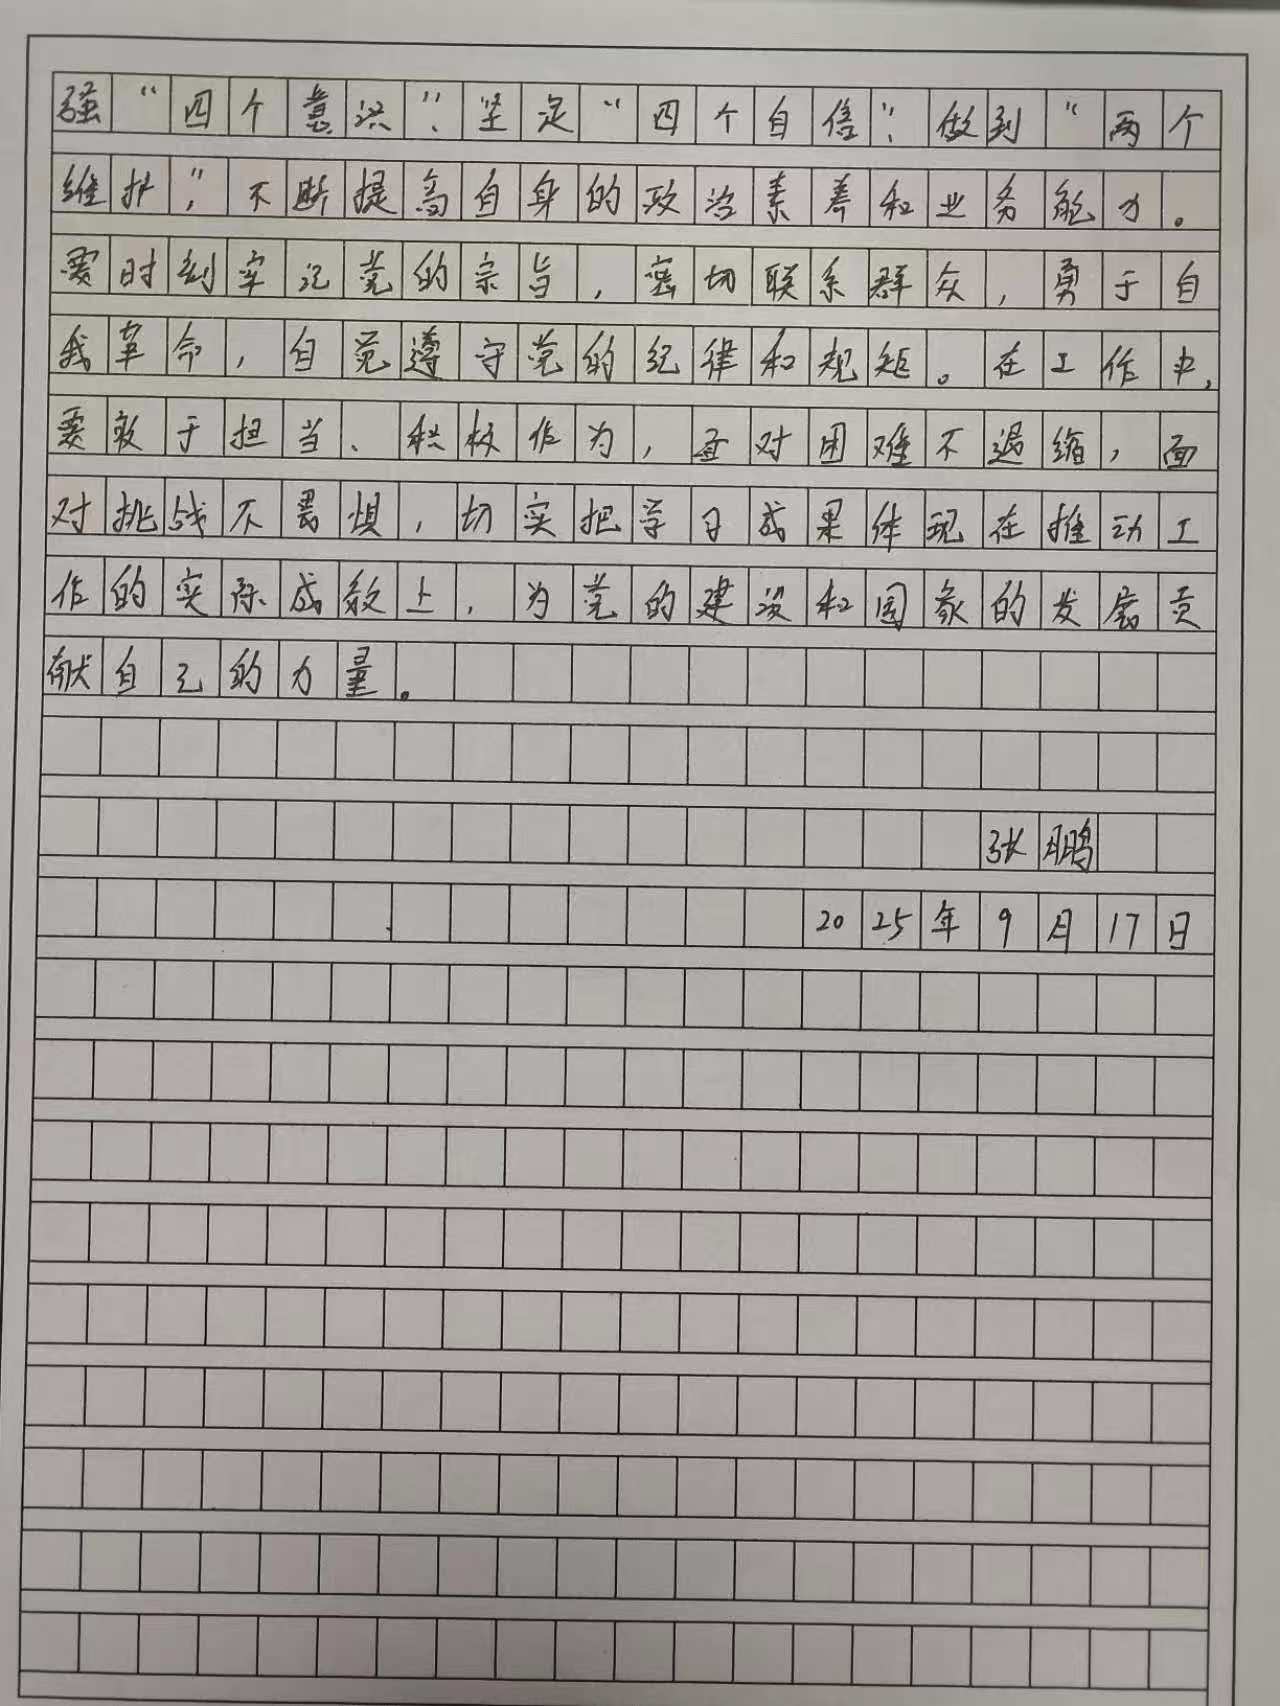 强“四个意识”、坚定“四个自信”、做到“两个
维护”，不断提高自身的政治素养和业务能力。
要时刻牢记党的宗旨，密切联系群众，勇于自
我革命，自觉遵守党的纪律和规矩。在工作中，
要敢于担当、积极作为，面对困难不退缩，面
对挑战不畏惧，切实把学习成果体现在推动工
作的实际成效上，为党的建设和国家的发展贡
献自己的力量。
张鹏
2025年9月17日